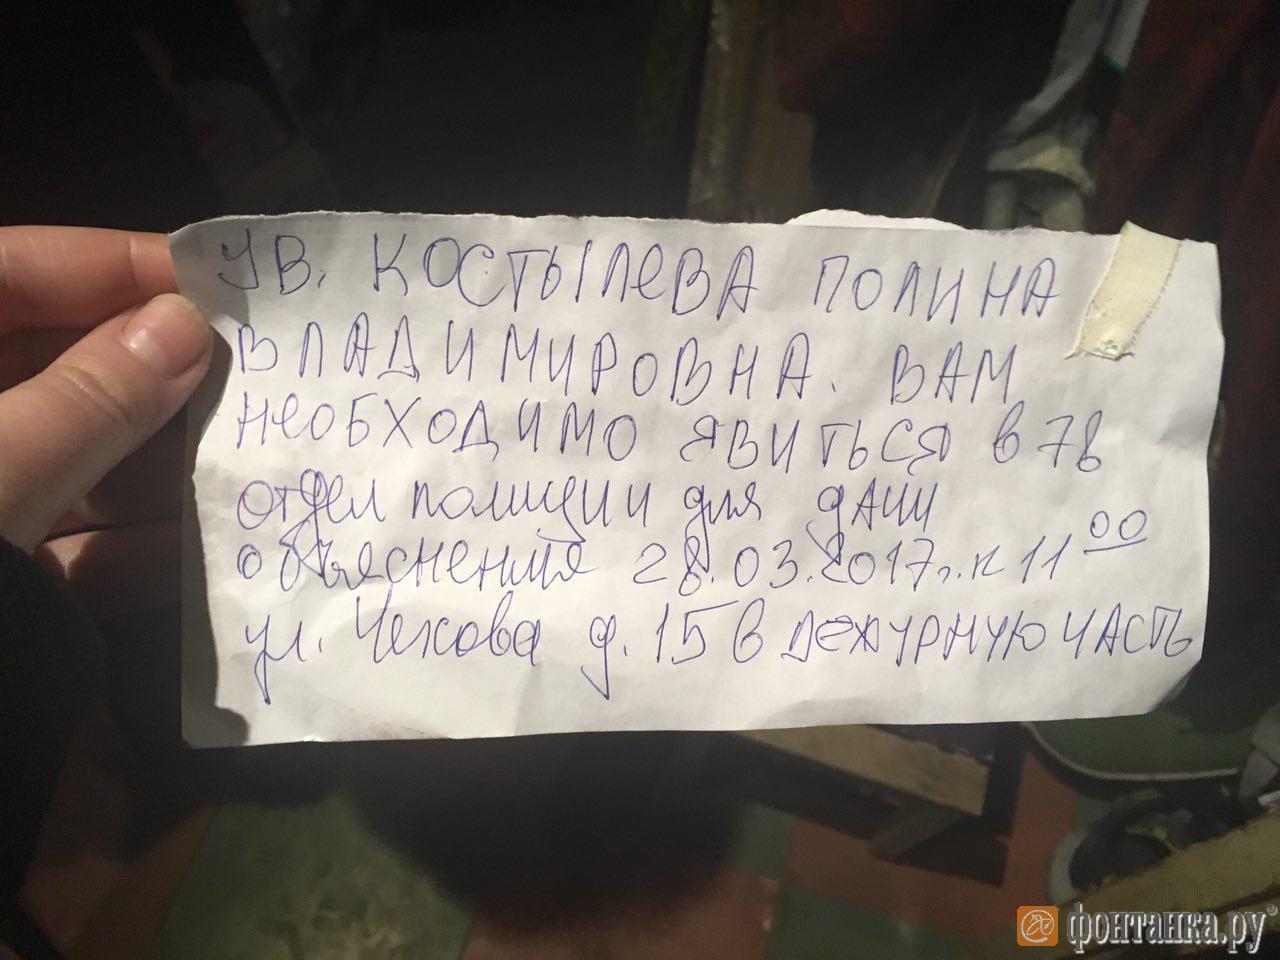 УВ. КОСТЫЛЕВА ПОЛИНА
ВЛАДИМИРОВНА. ВАМ
НЕОБХОДИМО ЯВИТЬСЯ В 78
отдел полиции для дачи
объяснения 28.03.2017г. к 11 00
ул. Чехова д. 15 в ДЕЖУРНУЮ ЧАСТЬ
фонтанка.ру